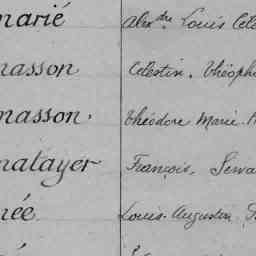 marié Alex.dre Louis Céle
masson Célestin. Théoph
masson. Théodore Marie.
matayer François. Serva
née Louis. Augustin.